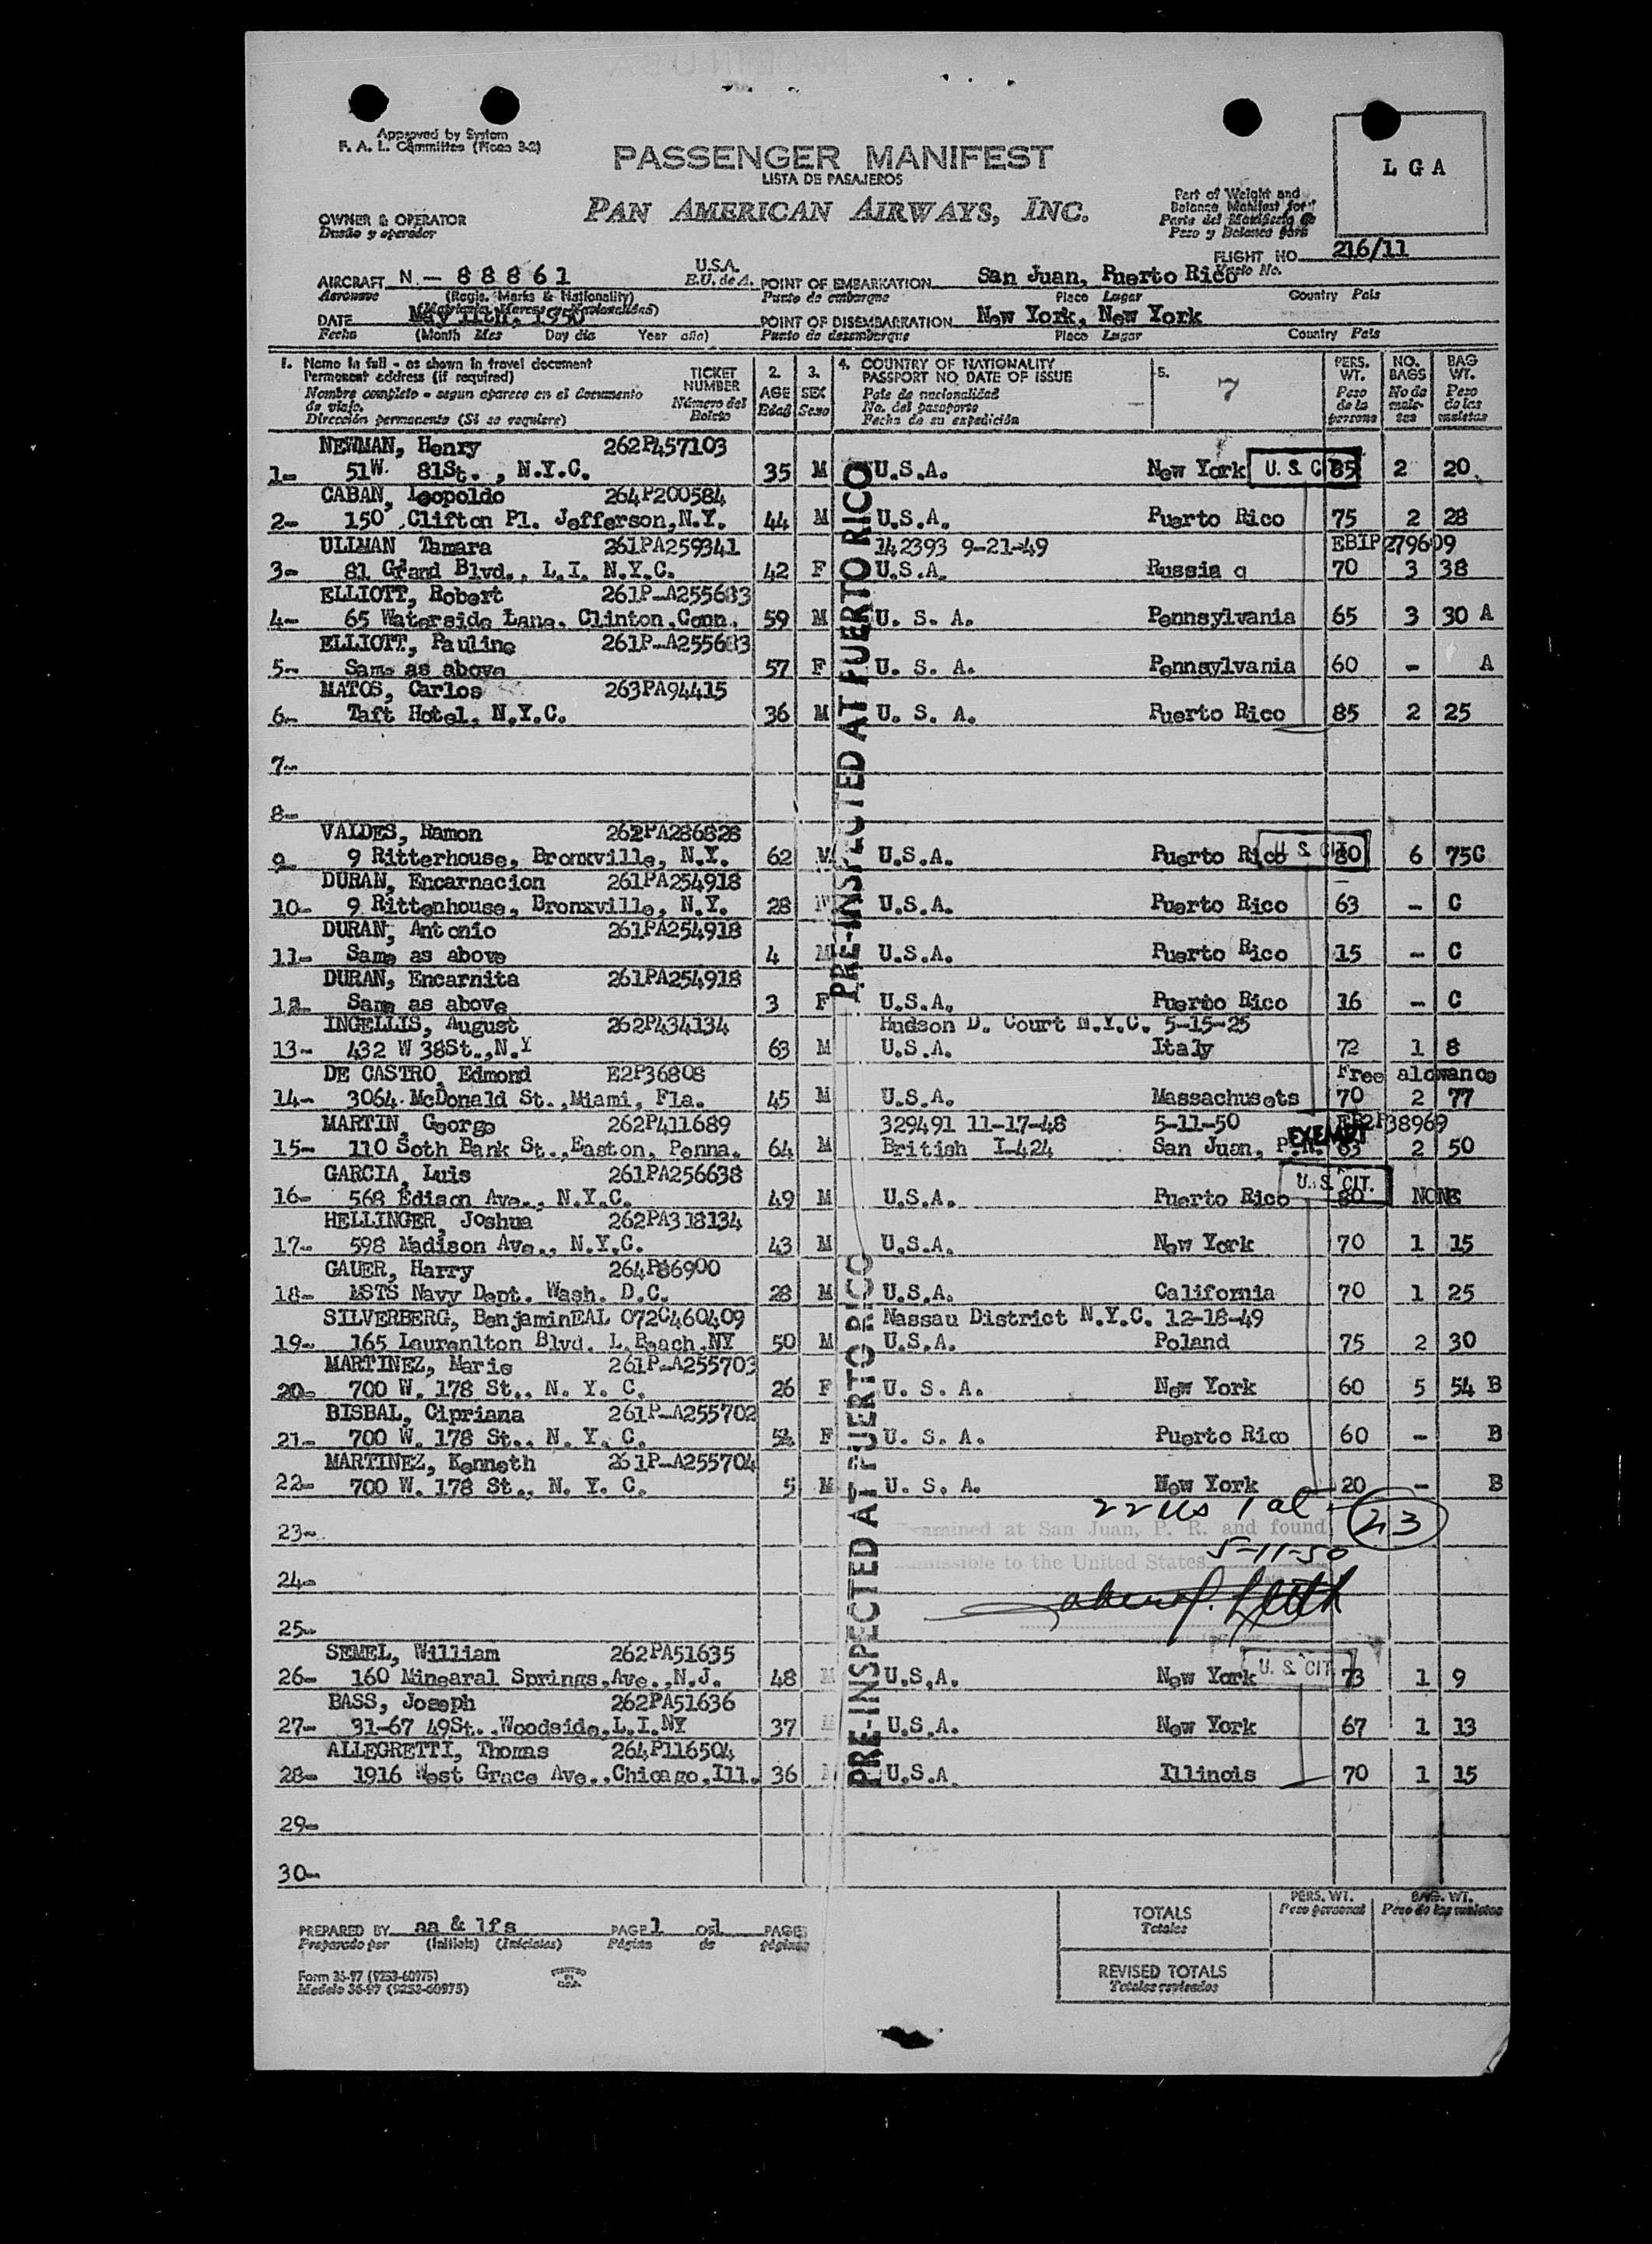 Approved by System
F. A. L. Committee (Mceo 3-2)
PASSENGER MANIFEST
LISTA DE PASAJEROS
PAN AMERICAN AIRWAYS, INC.
L G A
Part of Weight and
Balance Manifest for
Parte del Manifiesto de
Peso y Balance para
OWNER & OPERATOR
Dueño y operador
FLIGHT NO. 216/11
Vuelo No.
AIRCRAFT N - 88861 U.S.A. POINT OF EMBARKATION San Juan, Puerto Rico
Aeronave (Regis. Marks & Nationality) E.U. de A. Punto de embarque Place Lugar Country Pais
DATE May 11th, 1950 POINT OF DISEMBARKATION New York, New York
Fecha (Month Mes Day dia Year año) Punto de desembarque Place Lugar Country Pais
1. Name in full - as shown in travel document
Permanent address (if required)
Nombre completo - segun aparece en el documento
de viaje.
Dirección permanente (Si se requiere)
TICKET
NUMBER
Número del
Boleto
2.
AGE
Edad
3.
SEX
Sexo
4. COUNTRY OF NATIONALITY
PASSPORT NO. DATE OF ISSUE
Pais de nacionalidad
No. del pasaporte
Fecha de su expedición
5.
7
PERS.
WT.
Peso
de la
persona
NO.
BAGS
No de
male-
tas
BAG
WT.
Peso
de las
maletas
NEWMAN, Henry 262P457103
1- 51W. 81St., N.Y.C. 35 M U.S.A. New York U. S. C 85 2 20
CABAN, Leopoldo 264P200584
2- 150 Clifton Pl. Jefferson,N.Y. 44 M U.S.A. Puerto Rico 75 2 28
ULLMAN Tamara 261PA259341 142393 9-21-49 EBIP279609
3- 81 Grand Blvd., L.I. N.Y.C. 42 F U.S.A. Russia q 70 3 38
ELLIOTT, Robert 261P-A255683
4- 65 Waterside Lane. Clinton,Conn. 59 M U. S. A. Pennsylvania 65 3 30 A
ELLIOTT, Pauline 261P-A255683
5- Same as above 57 F U. S. A. Pennsylvania 60 - A
MATOS, Carlos 263PA94415
6- Taft Hotel, N.Y.C. 36 M U. S. A. Puerto Rico 85 2 25
7-
8-
VALDES, Ramon 262PA286828
9- 9 Ritterhouse, Bronxville, N.Y. 62 M U.S.A. Puerto Rico U. S. CIT. 80 6 75C
DURAN, Encarnacion 261PA254918
10- 9 Rittenhouse, Bronxville, N.Y. 28 U.S.A. Puerto Rico 63 - C
DURAN, Antonio 261PA254918
11- Same as above 4 M U.S.A. Puerto Rico 15 - C
DURAN, Encarnita 261PA254918
12- Same as above 3 F U.S.A. Puerto Rico 16 - C
INGELLIS, August 262P434134 Hudson D. Court N.Y.C. 5-15-25
13- 432 W 38St.,N.Y 63 M U.S.A. Italy 72 1 8
DE CASTRO, Edmond E2P36808 Free alowance
14- 3064 McDonald St.,Miami, Fla. 45 M U.S.A. Massachusets 70 2 77
MARTIN, George 262P411689 329491 11-17-48 5-11-50 EB2P38969
15- 110 Soth Bank St.,Easton, Penna. 64 M British I-424 San Juan, P.R. EXEMPT 65 2 50
GARCIA, Luis 261PA256638
16- 568 Edison Ave., N.Y.C. 49 M U.S.A. Puerto Rico U. S. CIT. 80 NONE
HELLINGER, Joshua 262PA318134
17- 598 Madison Ave., N.Y.C. 43 M U.S.A. New York 70 1 15
GAUER, Harry 264P86900
18- MSTS Navy Dept. Wash. D.C. 28 M U.S.A. California 70 1 25
SILVERBERG, BenjaminEAL 072C460409 Nassau District N.Y.C. 12-18-49
19- 165 Laurenlton Blvd. L.Beach,NY 50 M U.S.A. Poland 75 2 30
MARTINEZ, Marie 261P-A255703
20- 700 W. 178 St., N. Y. C. 26 F U. S. A. New York 60 5 54 B
BISBAL, Cipriana 261P-A255702
21- 700 W. 178 St., N. Y. C. F U. S. A. Puerto Rico 60 - B
MARTINEZ, Kenneth 261P-A255704
22- 700 W. 178 St., N. Y. C. 5 M U. S. A. New York 20 - B
22 us 1 al 23
23- Examined at San Juan, P. R. and found
admissible to the United States 5-11-50
24-
25-
SEMEL, William 262PA51635
26- 160 Minearal Springs,Ave.,N.J. 48 M U.S.A. New York U. S. CIT. 73 1 9
BASS, Joseph 262PA51636
27- 31-67 49St.,Woodside,L.I.NY 37 U.S.A. New York 67 1 13
ALLEGRETTI, Thomas 264P116504
28- 1916 West Grace Ave.,Chicago,Ill. 36 U.S.A. Illinois 70 1 15
29-
30-
PRE-INSPECTED AT PUERTO RICO
PRE-INSPECTED AT PUERTO RICO
PREPARED BY aa & lfs PAGE 1 of 1 PAGES
Preparado por (Initials) (Iniciales) Página de páginas
Form 36-97 (9253-60975)
Modelo 36-97 (9253-60975)
PRINTED
IN
U.S.A.
PERS. WT.
Peso personal
BAG. WT.
Peso de las maletas
TOTALS
Totales
REVISED TOTALS
Totales revisados